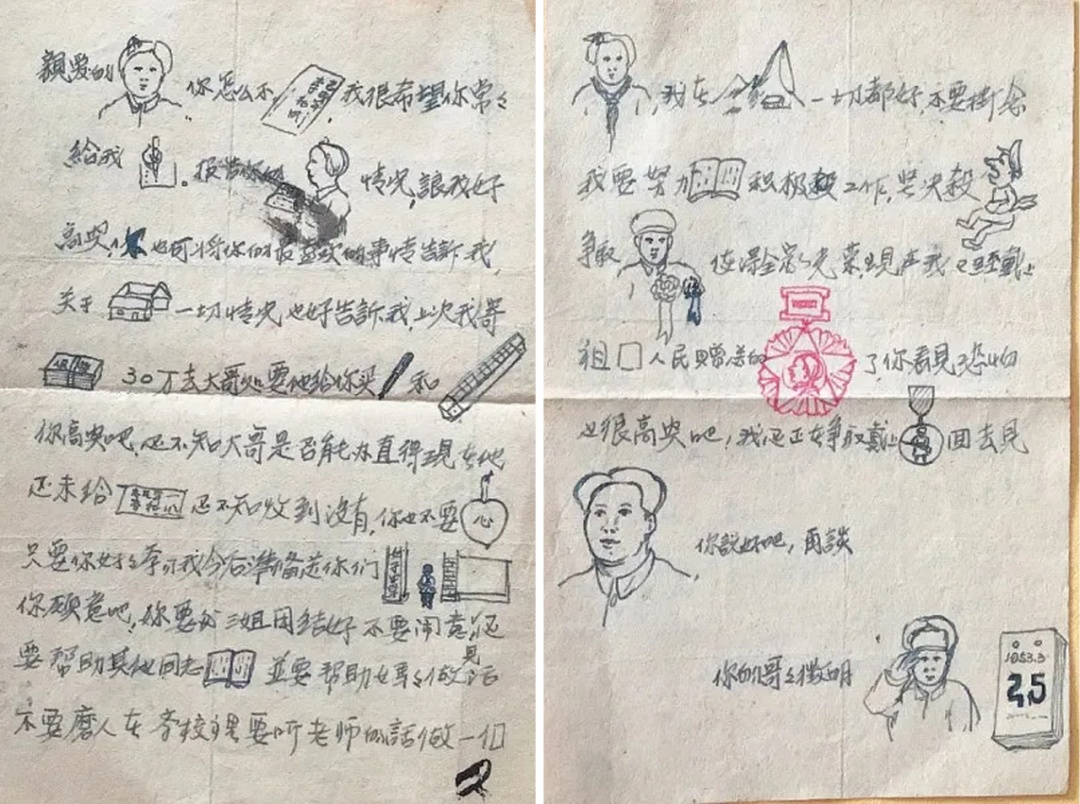 親愛的 你怎么不 我很希望你常々
給我 。报告你的 情况,讓我好
高兴,你也可将你们最喜欢的事情告訴我,
关于 一切情况也好告訴我,上次我寄
30万去大哥処要他给你买 和
你高兴吧,还不知大哥是否能办直得現在他
还未给 还不知收到没有,你也不要 心
只要你好々学习我今后準备送你们
你願意吧,你要和三姐团结好不要闹意見还
要帮助其他同志 並要帮助妈々做活
不要磨人在学校裡要听老师的話做一個
,我在 一切都好,不要掛念
我要努力 积极工作,坚决殺
争取 使得全家光荣,現在我已经戴上
祖□人民贈送的 了你看見恐怕
也很高兴吧,我还正在争取戴上 回去見
你説好吧,再談
你的哥々徵明
1953.3
25